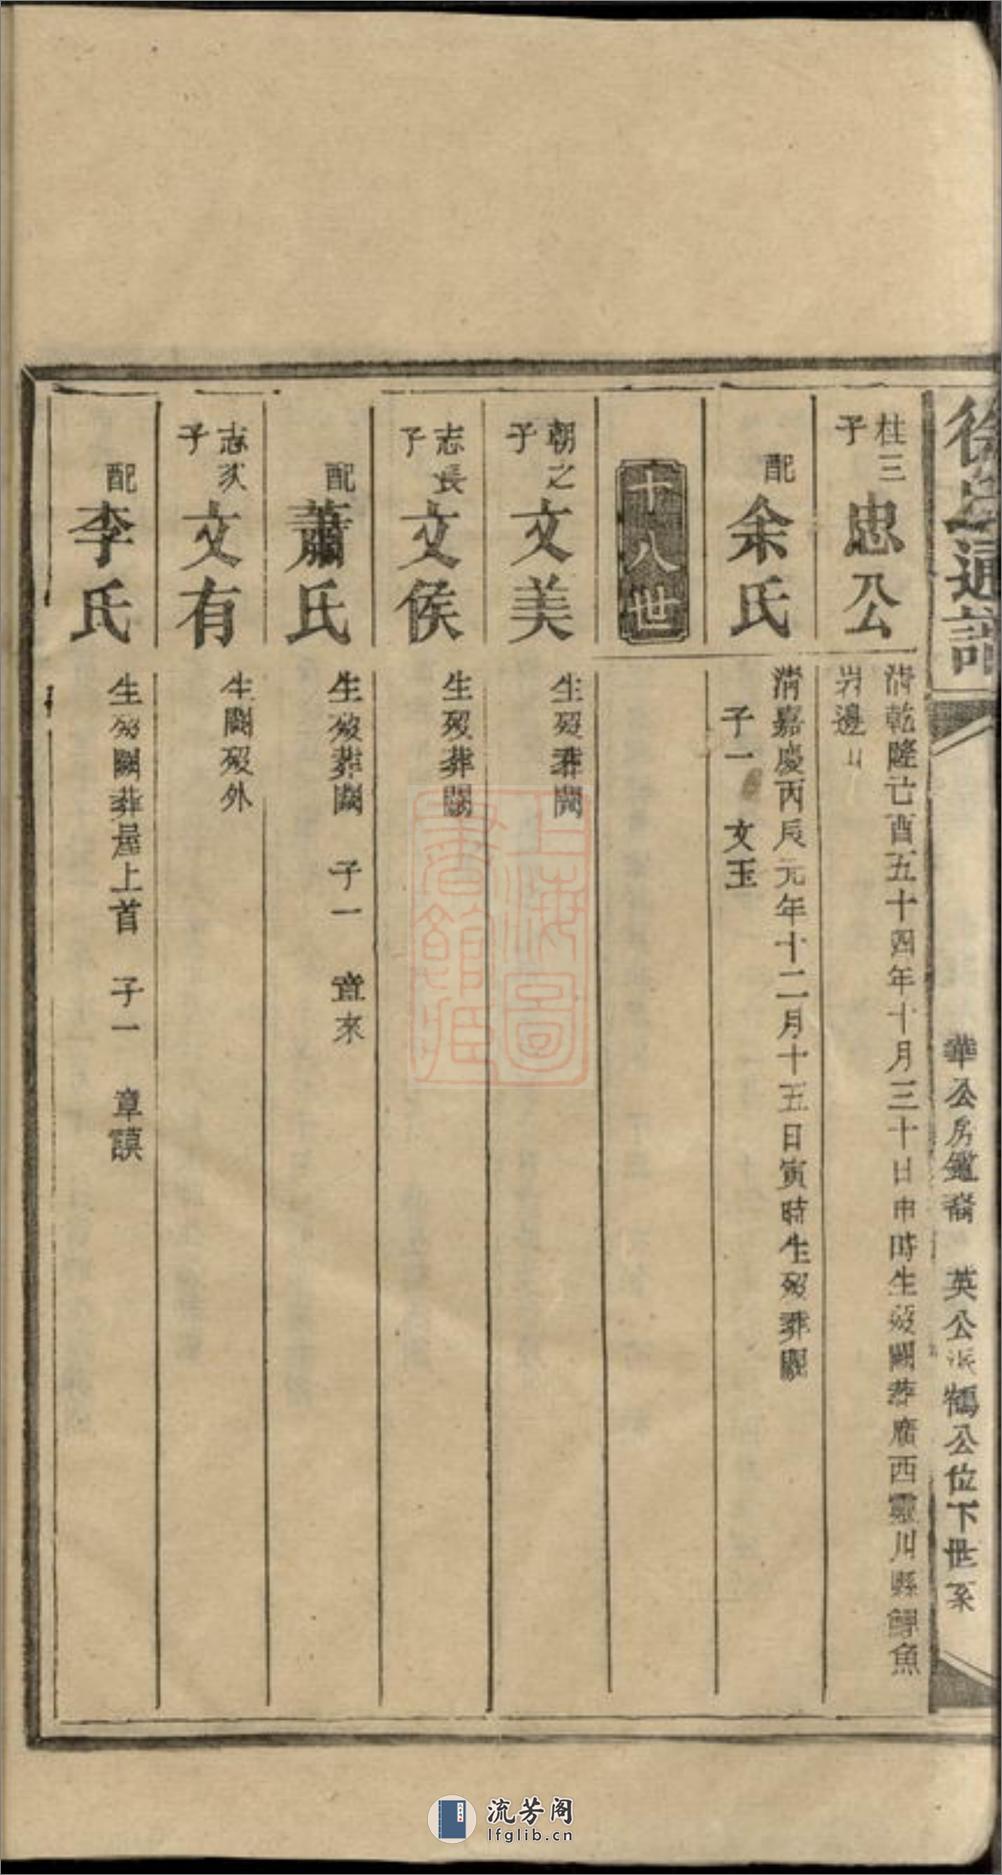 徐氏通譜
華公房鑑裔 英公派鶴公位下世系
柱三子
忠公
清乾隆己酉五十四年十月三十日申時生歿闕葬廣西靈川縣鯉魚
岩邊
配
余氏
清嘉慶丙辰元年十二月十五日寅時生歿葬闕
子一 文玉
十八世
朝之子
文美
生歿葬闕
志長子
文侯
生歿葬闕
配
蕭氏
生歿葬闕 子一 章來
志次子
文有
生闕歿外
配
李氏
生歿闕葬屋上首 子一 章謨
上海圖書館藏
流芳阁
lfglib.cn